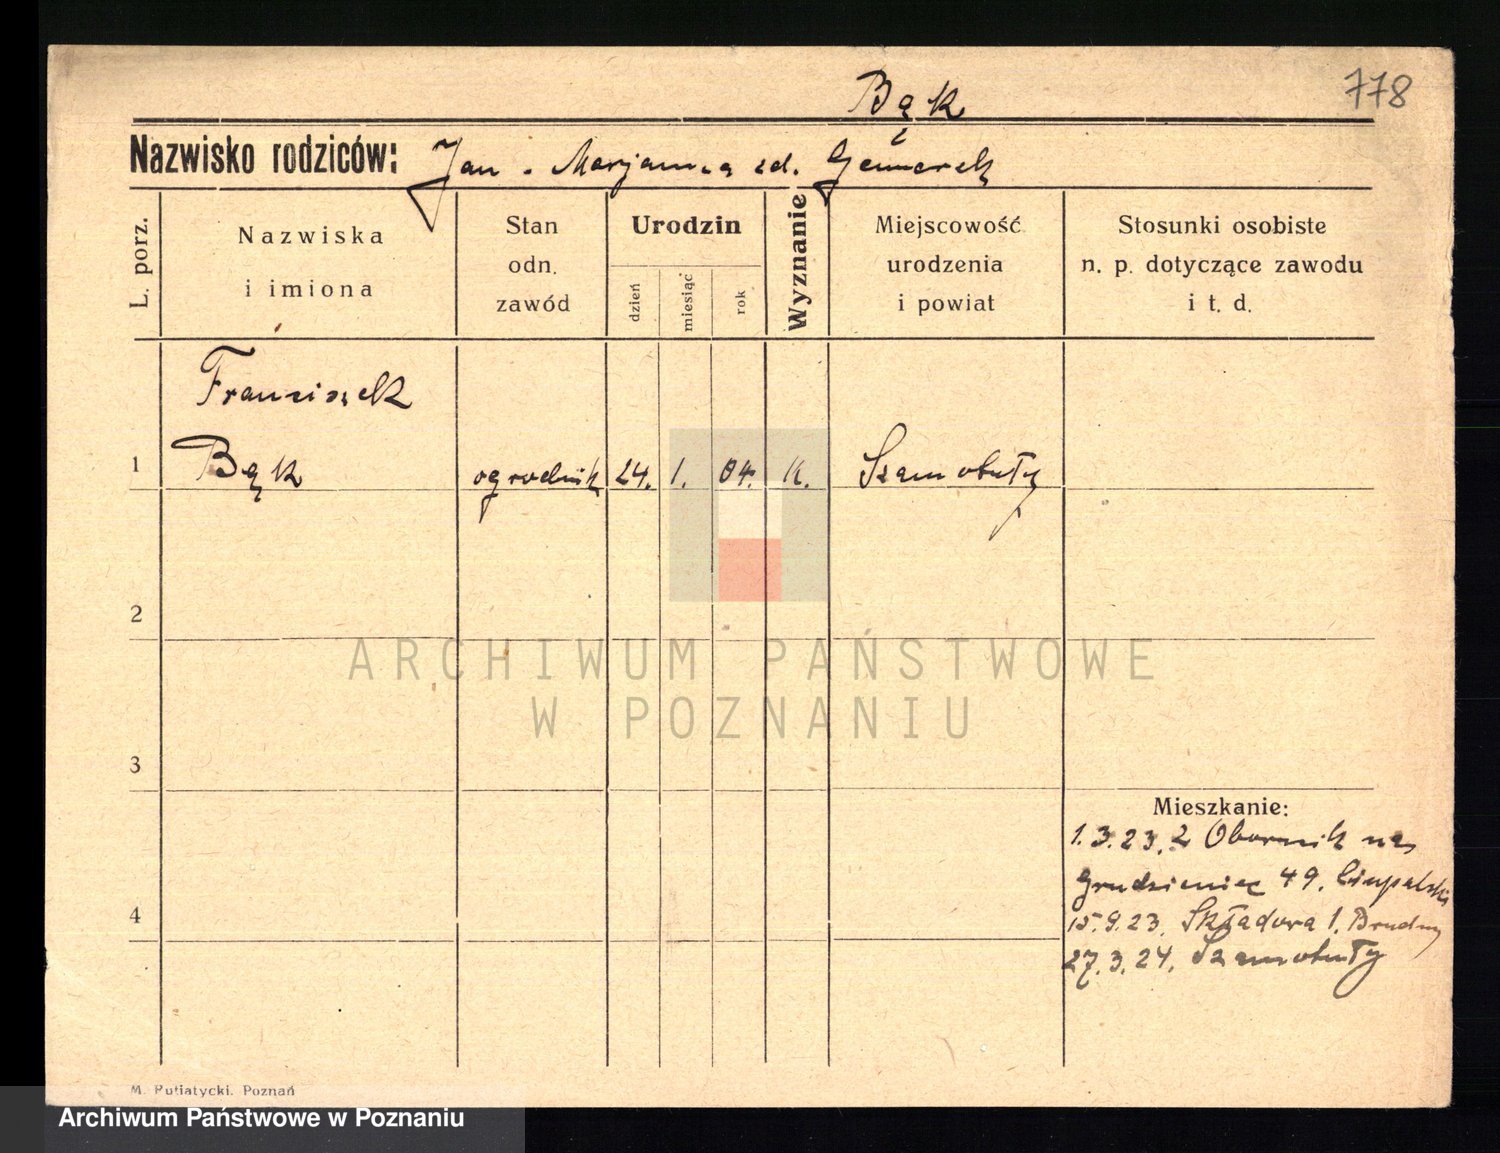 778
Bąk
Nazwisko rodziców: Jan. Marjanna zd.
L. porz.
Nazwiska i imiona
Stan odn. zawód
Urodzin
dzień
miesiąc
rok
Wyznanie
Miejscowość urodzenia i powiat
Stosunki osobiste n. p. dotyczące zawodu i t. d.
Franciszek
1 Bąk ogrodnik 24. 1. 04. K. Szamotuły
2
ARCHIWUM PAŃSTWOWE
W POZNANIU
3
Mieszkanie:
1.3.23. z Obornik na
Grudzieniec 49.
4
15.9.23. Składowa 1.
27.3.24. Szamotuły
M. Putiatycki. Poznań
Archiwum Państwowe w Poznaniu